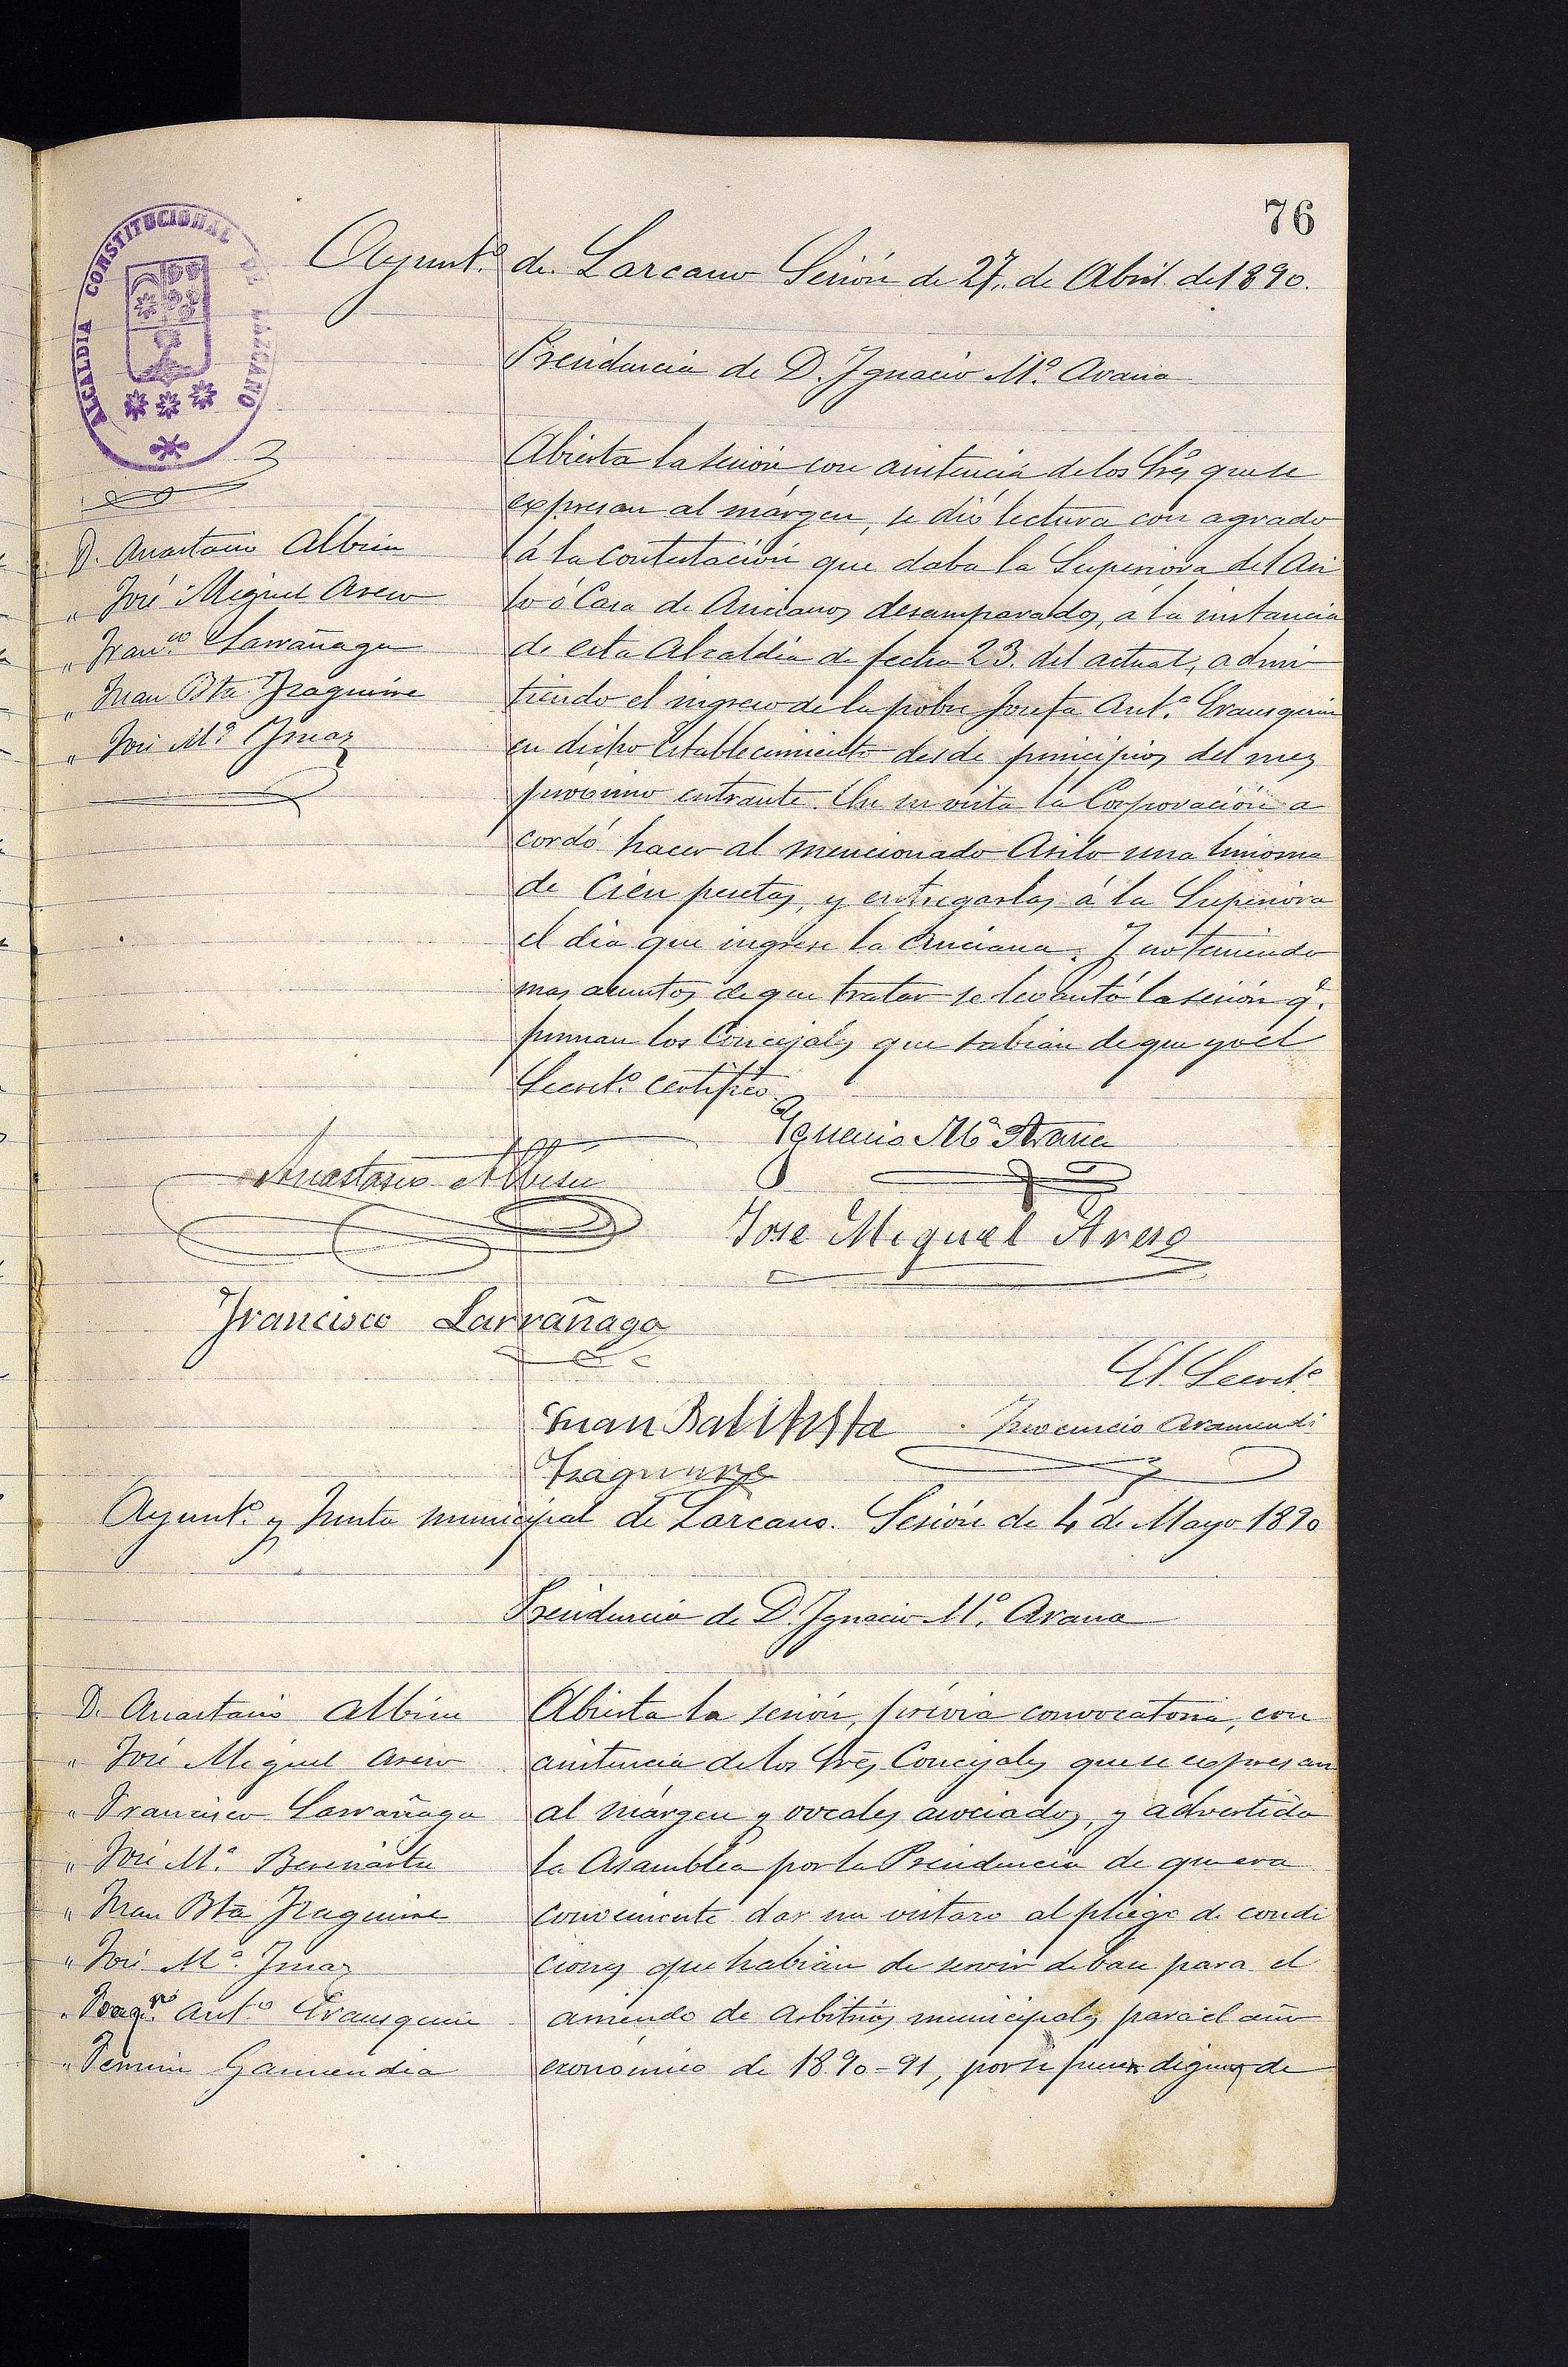 76
ALCALDIA CONSTITUCIONAL DE LAZCANO
Ayunt.º de Lazcano Sesión de 27,, de Abril de 1890.
Presidencia de D. Ignacio M.ª Arana
D. Anastasio Albisu
" José Miguel Areso
" Fran.co Larrañaga
" Juan Bta. Izaguirre
" José M.ª Imaz
Abierta la sesión con asistencia de los Sres que se
expresan al márgen, se dió lectura con agrado
á la contestación que daba la Superiora del Asi
lo ó Casa de Ancianos desamparados, á la instancia
de esta Alcaldia de fecha 23. del actual, admi
tiendo el ingreso de la pobre Josefa Ant.ª Erausquin
en dicho establecimiento desde principios del mes
próximo entrante. En su vista la Corporación a
cordó hacer al mencionado Asilo una limosna
de Cién pesetas, y entregarlas á la Superiora
el dia que ingrese la anciana. Y no teniendo
mas asuntos de que tratar se levantó la sesión q.e
firman los Concejales que sabian de que yo el
Secret.º certifico.
Ignacio Mª Arana
Anastasio Albisu
Jose Miguel Areso
Francisco Larrañaga
El Secret.º
Juan Batista Inocencio Aramendi
Izaguirre
Ayunt.º y Junta municipal de Lazcano. Sesión de 4 de Mayo 1890
Presidencia de D. Ignacio M.ª Arana
D. Anastasio Albisu
" José Miguel Areso
" Francisco Larrañaga
" José M.ª Beseriartu
" Juan Bta Izaguirre
" José M.ª Imaz
" Joaq.n Ant.º Erausquin
" Fermin Garmendia
Abierta la sesión, prévia convocatoria, con
asistencia de los Sres Concejales que se expresan
al márgen y vocales asociados, y advertida
la Asamblea por la Presidencia de que era
conveniente dar un vistazo al pliego de condi
ciones que habian de servir de base para el
arriendo de arbitrios municipales para el año
económico de 1890-91, por si fuesen dignos de